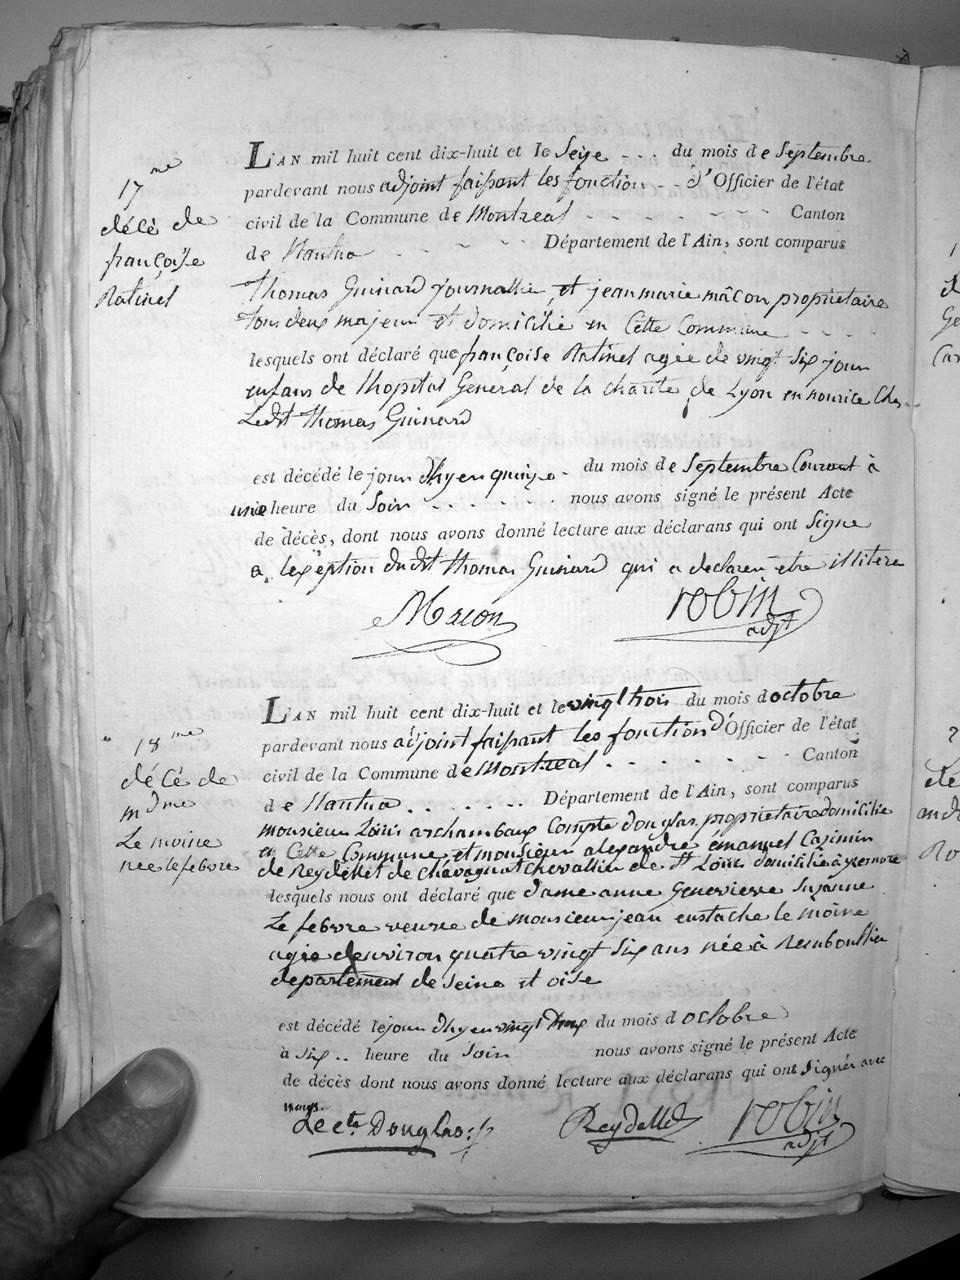 17me
décè de
françoise
Ratinel
L'AN mil huit cent dix-huit et le seize - - - du mois de Septembre
pardevant nous adjoint faisant les fonction - - d'Officier de l'état
civil de la Commune de Montreal - - - - - - - Canton
de Nantua - - - - Département de l'Ain, sont comparus
Thomas Guinard journallie, et jean marie mâcon proprietaire
tous deux majeur et domicilie en Cette Commune - - - -
lesquels ont déclaré que françoise Ratinel agée de vingt six jour
enfans de lhopital General de la charite de Lyon en nourice Ches
Ledit Thomas Guinard
est décédé le jour dhyer quinze - du mois de Septembre Courant à
une heure du Soir - - - - - - nous avons signé le présent Acte
de décès, dont nous avons donné lecture aux déclarans qui ont Signe
a lexéption dudit thomas Guinard qui a declaren etre illitere
Macon
robin
adjt
18me
décé de
mdme
Le moine
nee lefebvre
L'AN mil huit cent dix-huit et le vingt trois du mois d octobre
pardevant nous adjoint faisant les fonction d'Officier de l'état
civil de la Commune de Montreal - - - - - - - Canton
de Nantua - - - - - - Département de l'Ain, sont comparus
monsieur Louis archambaux Compte douglas, proprietaire domicilie
en Cette Commune et monsieur alexandre émanuel Casimir
de Reydellet de Chavagnat chevallier de St Louis domicilie à
lesquels nous ont déclaré que dame anne Genevieve Suzanne
Le febvre veuve de monsieur jean eustache le moine
agée denviron quatre vingt six ans née à Remboullier
departement de Seine et oise
est décédé le jour dhyer vingt deux du mois d octobre
à six - - heure du Soir nous avons signé le présent Acte
de décès dont nous avons donné lecture aux déclarans qui ont Signés avec
nous.
Le cte Douglas
Reydellet
robin
adjt